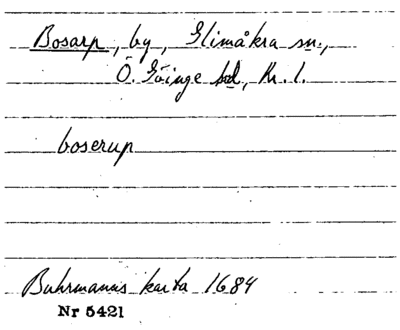 Bosarp, by, Glimåkra sn.,
Ö. Göinge hd, Kr. l.
boserup
Buhrmanns karta 1684
Nr 5421